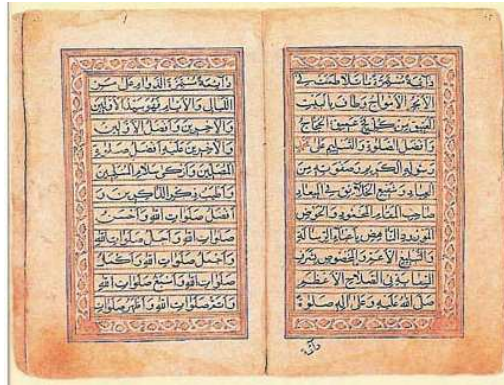 دائمة مستمرة
الابحر الامواج وطاف بالبيت
العتيق من كل فج عميق الحجاج
وافضل الصلوة والتسليم على محمد
رسوله الكريم وصفوته من
العباد وشفيع الخلائق في المعاد
صاحب المقام المحمود والحوض
المورود الناهض باعباء الرسالة
والتبليغ الاعم والمخصوص بشرف
في الصلاح الاعظم
صلى الله عليه وعلى اله صلوة
دائمة
دائمة مستمرة الدوام على مر
الليالي والايام فهو سيد الاولين
والاخرين وافضل الاولين
والاخرين عليه افضل صلوة
المصلين وازكى سلام المسلمين
واطيب ذكر الذاكرين و
افضل صلوات الله واحسن
صلوات الله واجل صلوات الله
واجمل صلوات الله واكمل
صلوات الله واسبغ صلوات الله
واتم صلوات الله واظهر صلوات